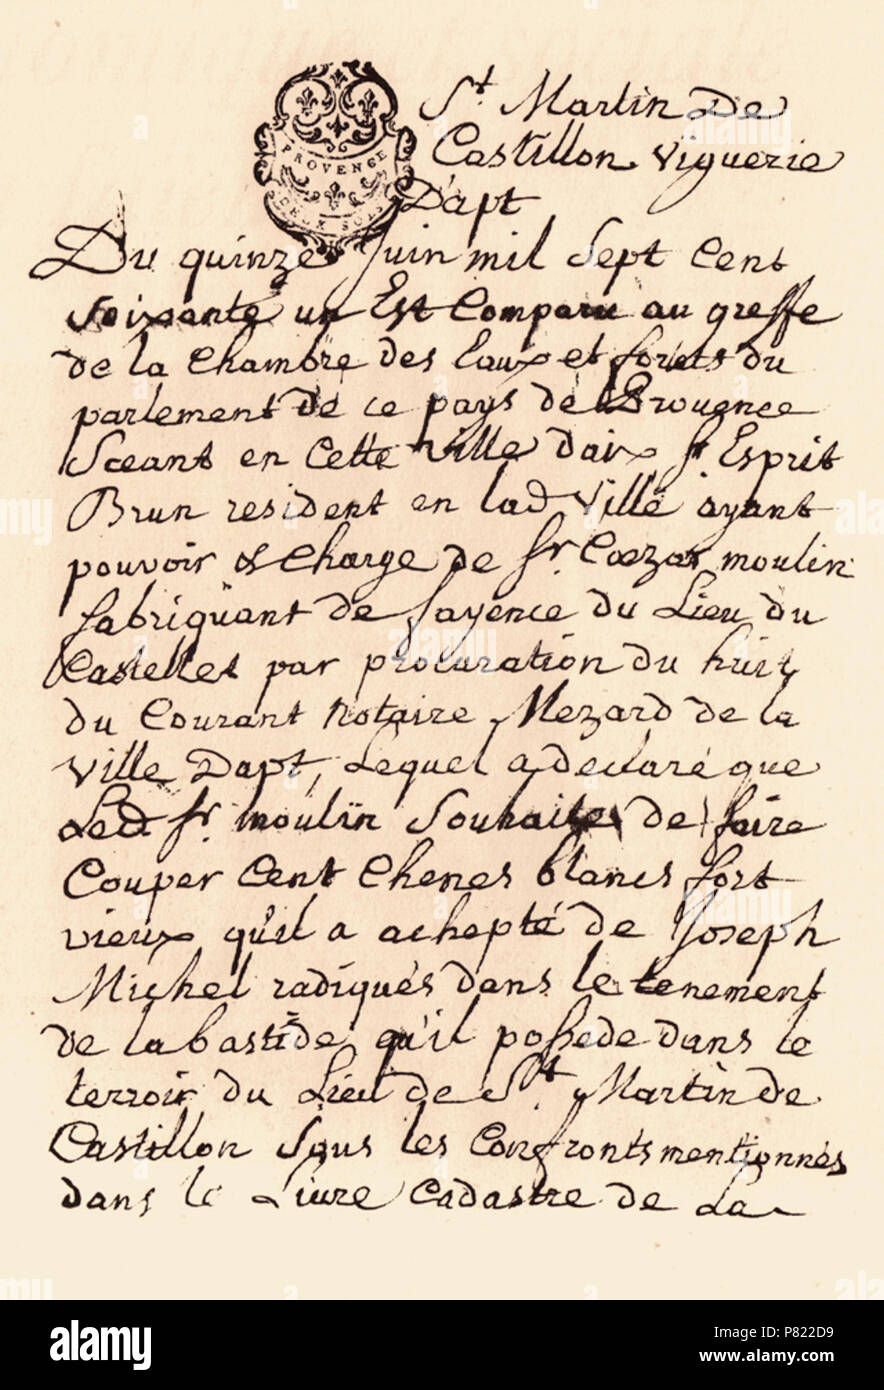 St. Martin De
Castillon viguerie
D'apt
PROVENCE
DEUX SOLS
Du quinze Juin mil sept Cent
soixante un Est Comparu au greffe
de la Chambre des Eaux et forets du
parlement de ce pays de Prouence
Sceant en Cette Ville daix sr Esprit
Brun resident en lad Ville ayant
pouvoir & Charge de sr Coezar moulin
fabriquant de fayence du Lieu du
Castellet par procuration du huit
du Courant Notaire Mezard de la
ville Dapt, Lequel a declaré que
Led sr. moulin Souhaite de faire
Couper Cent Chenes blancs fort
vieux qu'il a achepté de Joseph
Michel radiqués dans le tenement
de la bastide qu'il possede dans le
terroir du Lieu de St. Martin de
Castillon sous les Confronts mentionnés
dans le Livre Cadastre de La
alamy
P822D9